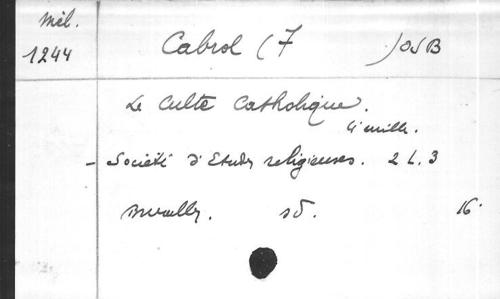 Mél.
1244
Cabrol (F )OSB
Le Culte Catholique.
4e mille.
- Société d'Etudes religieuses. 2 L. 3
sd. 16